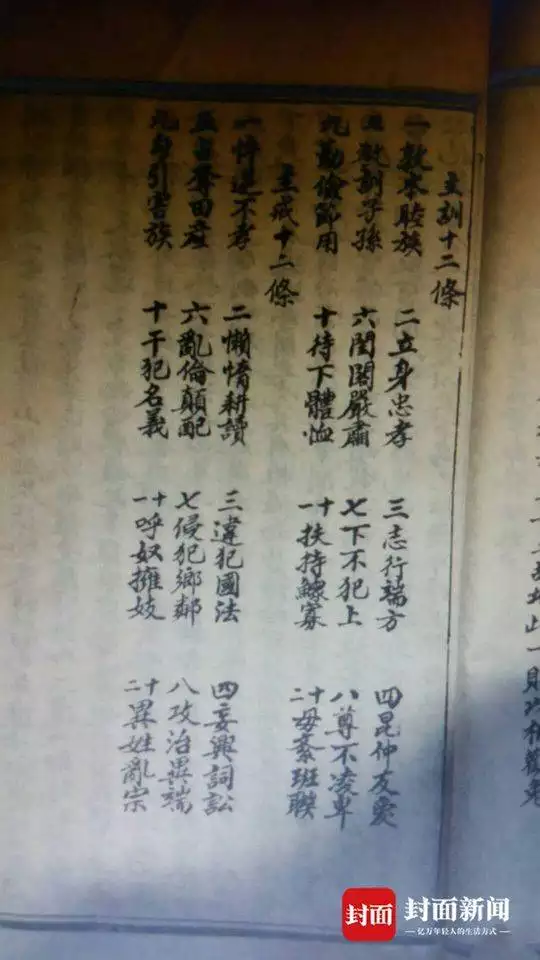 主訓十二條
一敦本睦族 二立身忠孝 三志行端方 四昆仲友愛
五教訓子孫 六閨閣嚴肅 七下不犯上 八尊不凌卑
九勤儉節用 十待下體恤 十一扶持鰥寡 十二毋紊班聯
主戒十二條
一悖逆不孝 二懶惰耕讀 三違犯國法 四妄興詞訟
五占奪田產 六亂倫顛配 七侵犯鄉鄰 八攻治異端
九勾引害族 十干犯名義 十一呼奴擁妓 十二異姓亂宗
封面 封面新闻
亿万年轻人的生活方式